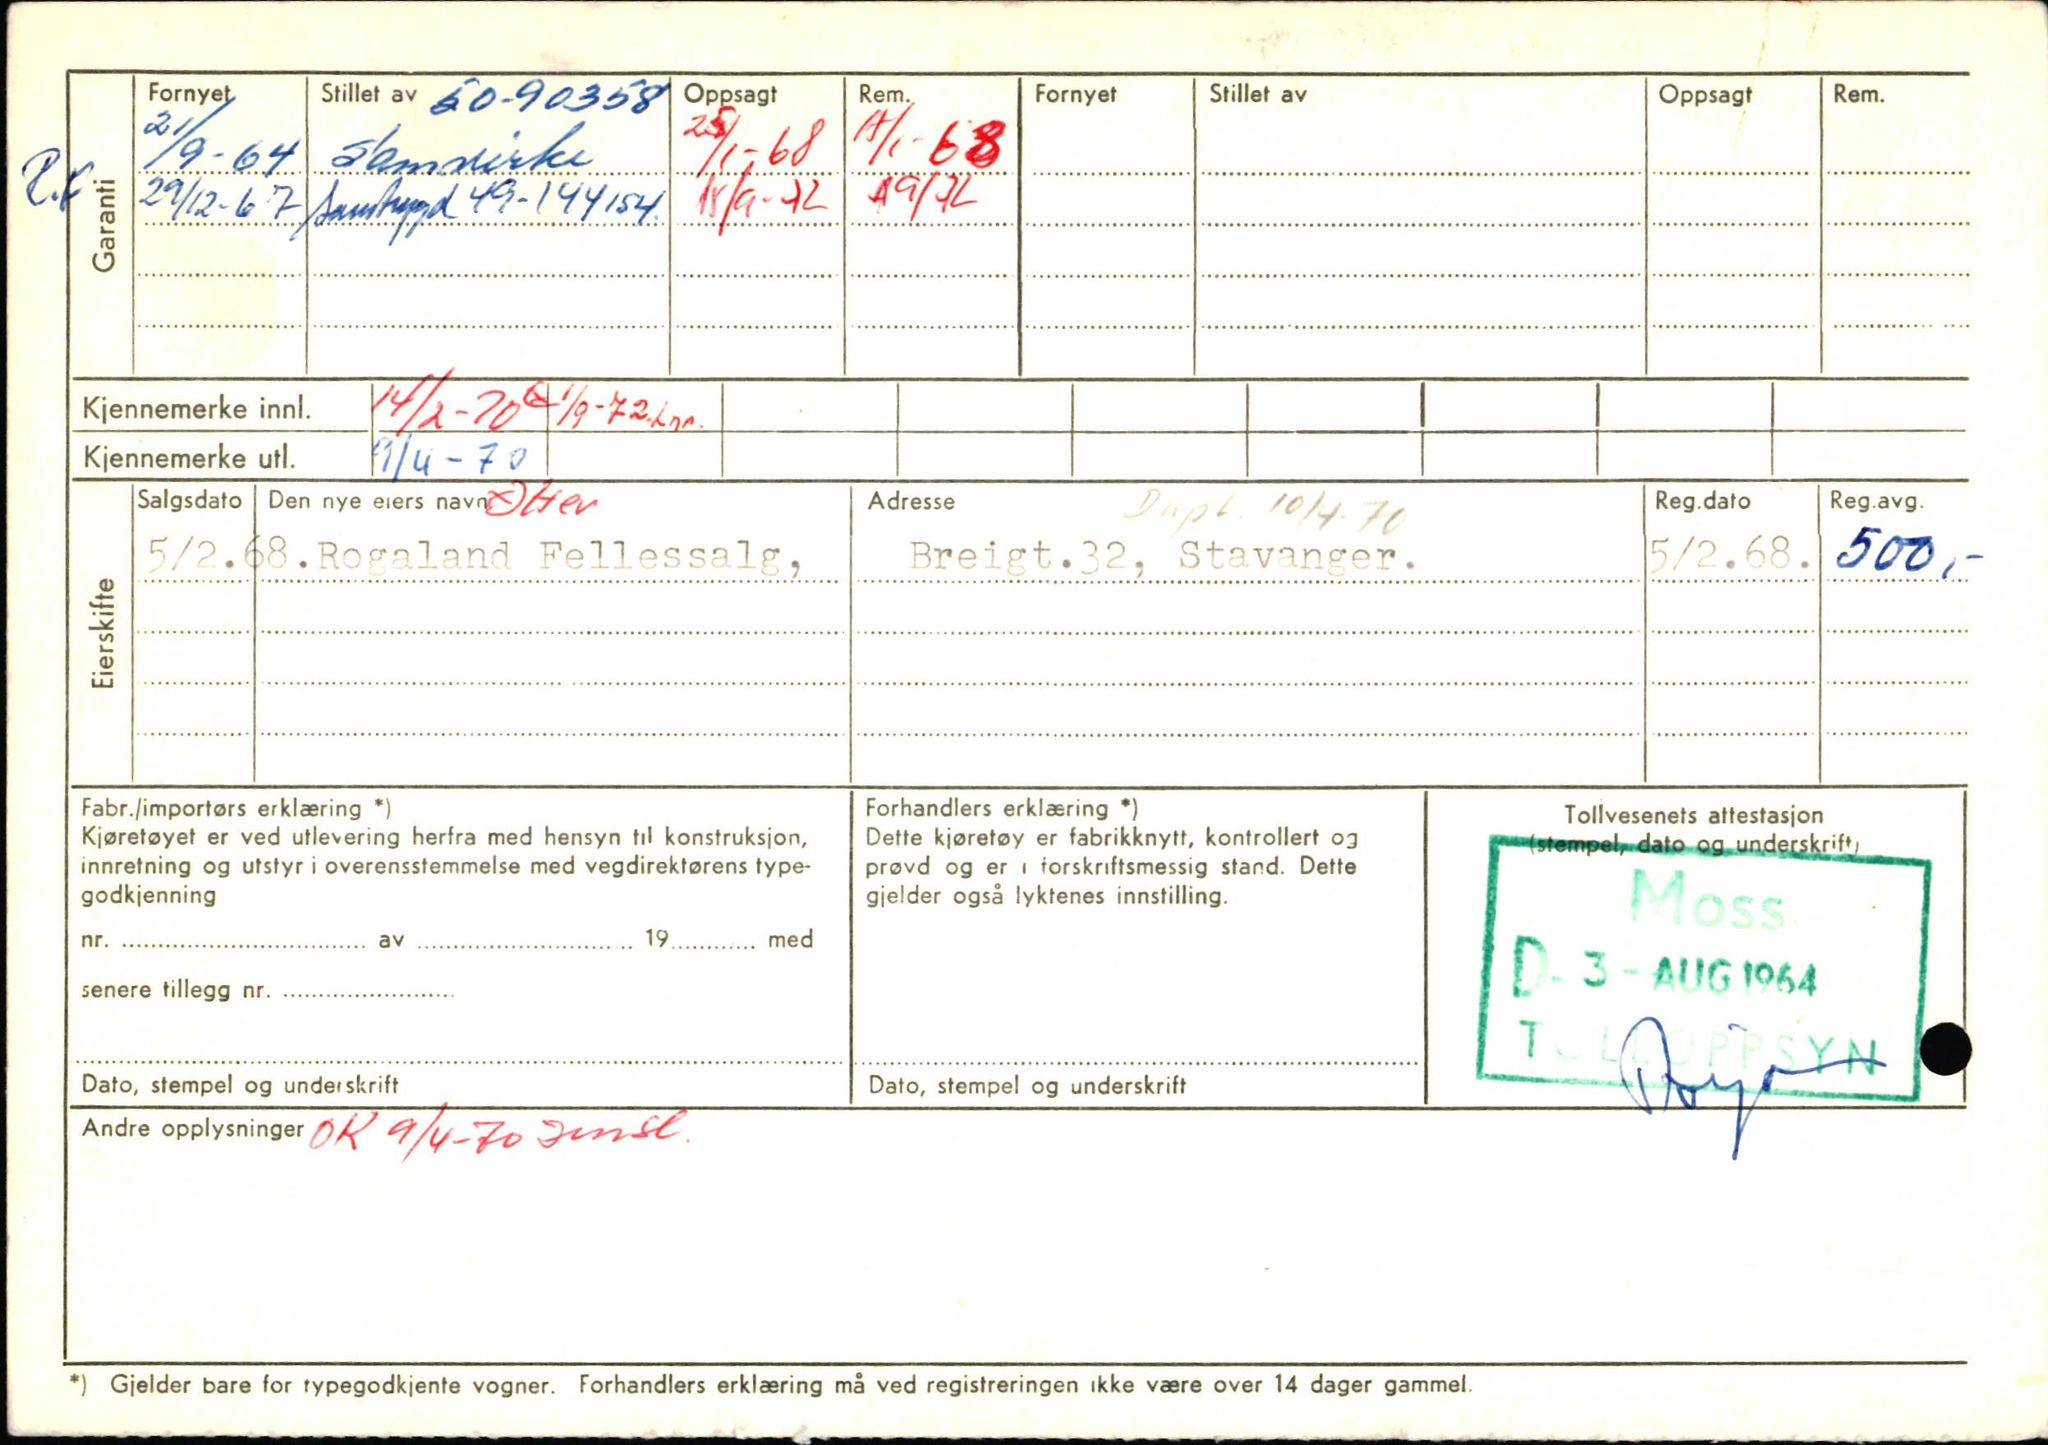 Fornyet Stillet av 50-90358 Oppsagt Rem. Fornyet Stillet av Oppsagt Rem.
21/9-64 Samvirke 25/1-68 /1-68
29/12-67 Samtrygd 49-144154. 18/9-72 9/72
Garanti
Kjennemerke innl. 14/2-70 1/9-72
Kjennemerke utl. 9/4-70
Eierskifte
Salgsdato Den nye eiers navn Adresse Dupl. 10/4-70 Reg.dato Reg.avg.
5/2.68. Rogaland Fellessalg, Breigt.32, Stavanger. 5/2.68. 500,-
Fabr./importørs erklæring *)
Kjøretøyet er ved utlevering herfra med hensyn til konstruksjon,
innretning og utstyr i overensstemmelse med vegdirektørens type-
godkjenning
nr. av 19 med
senere tillegg nr.
Dato, stempel og underskrift
Forhandlers erklæring *)
Dette kjøretøy er fabrikknytt, kontrollert og
prøvd og er i forskriftsmessig stand. Dette
gjelder også lyktenes innstilling.
Dato, stempel og underskrift
Tollvesenets attestasjon
(stempel, dato og underskrift)
Moss
D. 3 - AUG 1964
TOLLOPPSYN
Andre opplysninger OK 9/4-70
*) Gjelder bare for typegodkjente vogner. Forhandlers erklæring må ved registreringen ikke være over 14 dager gammel.